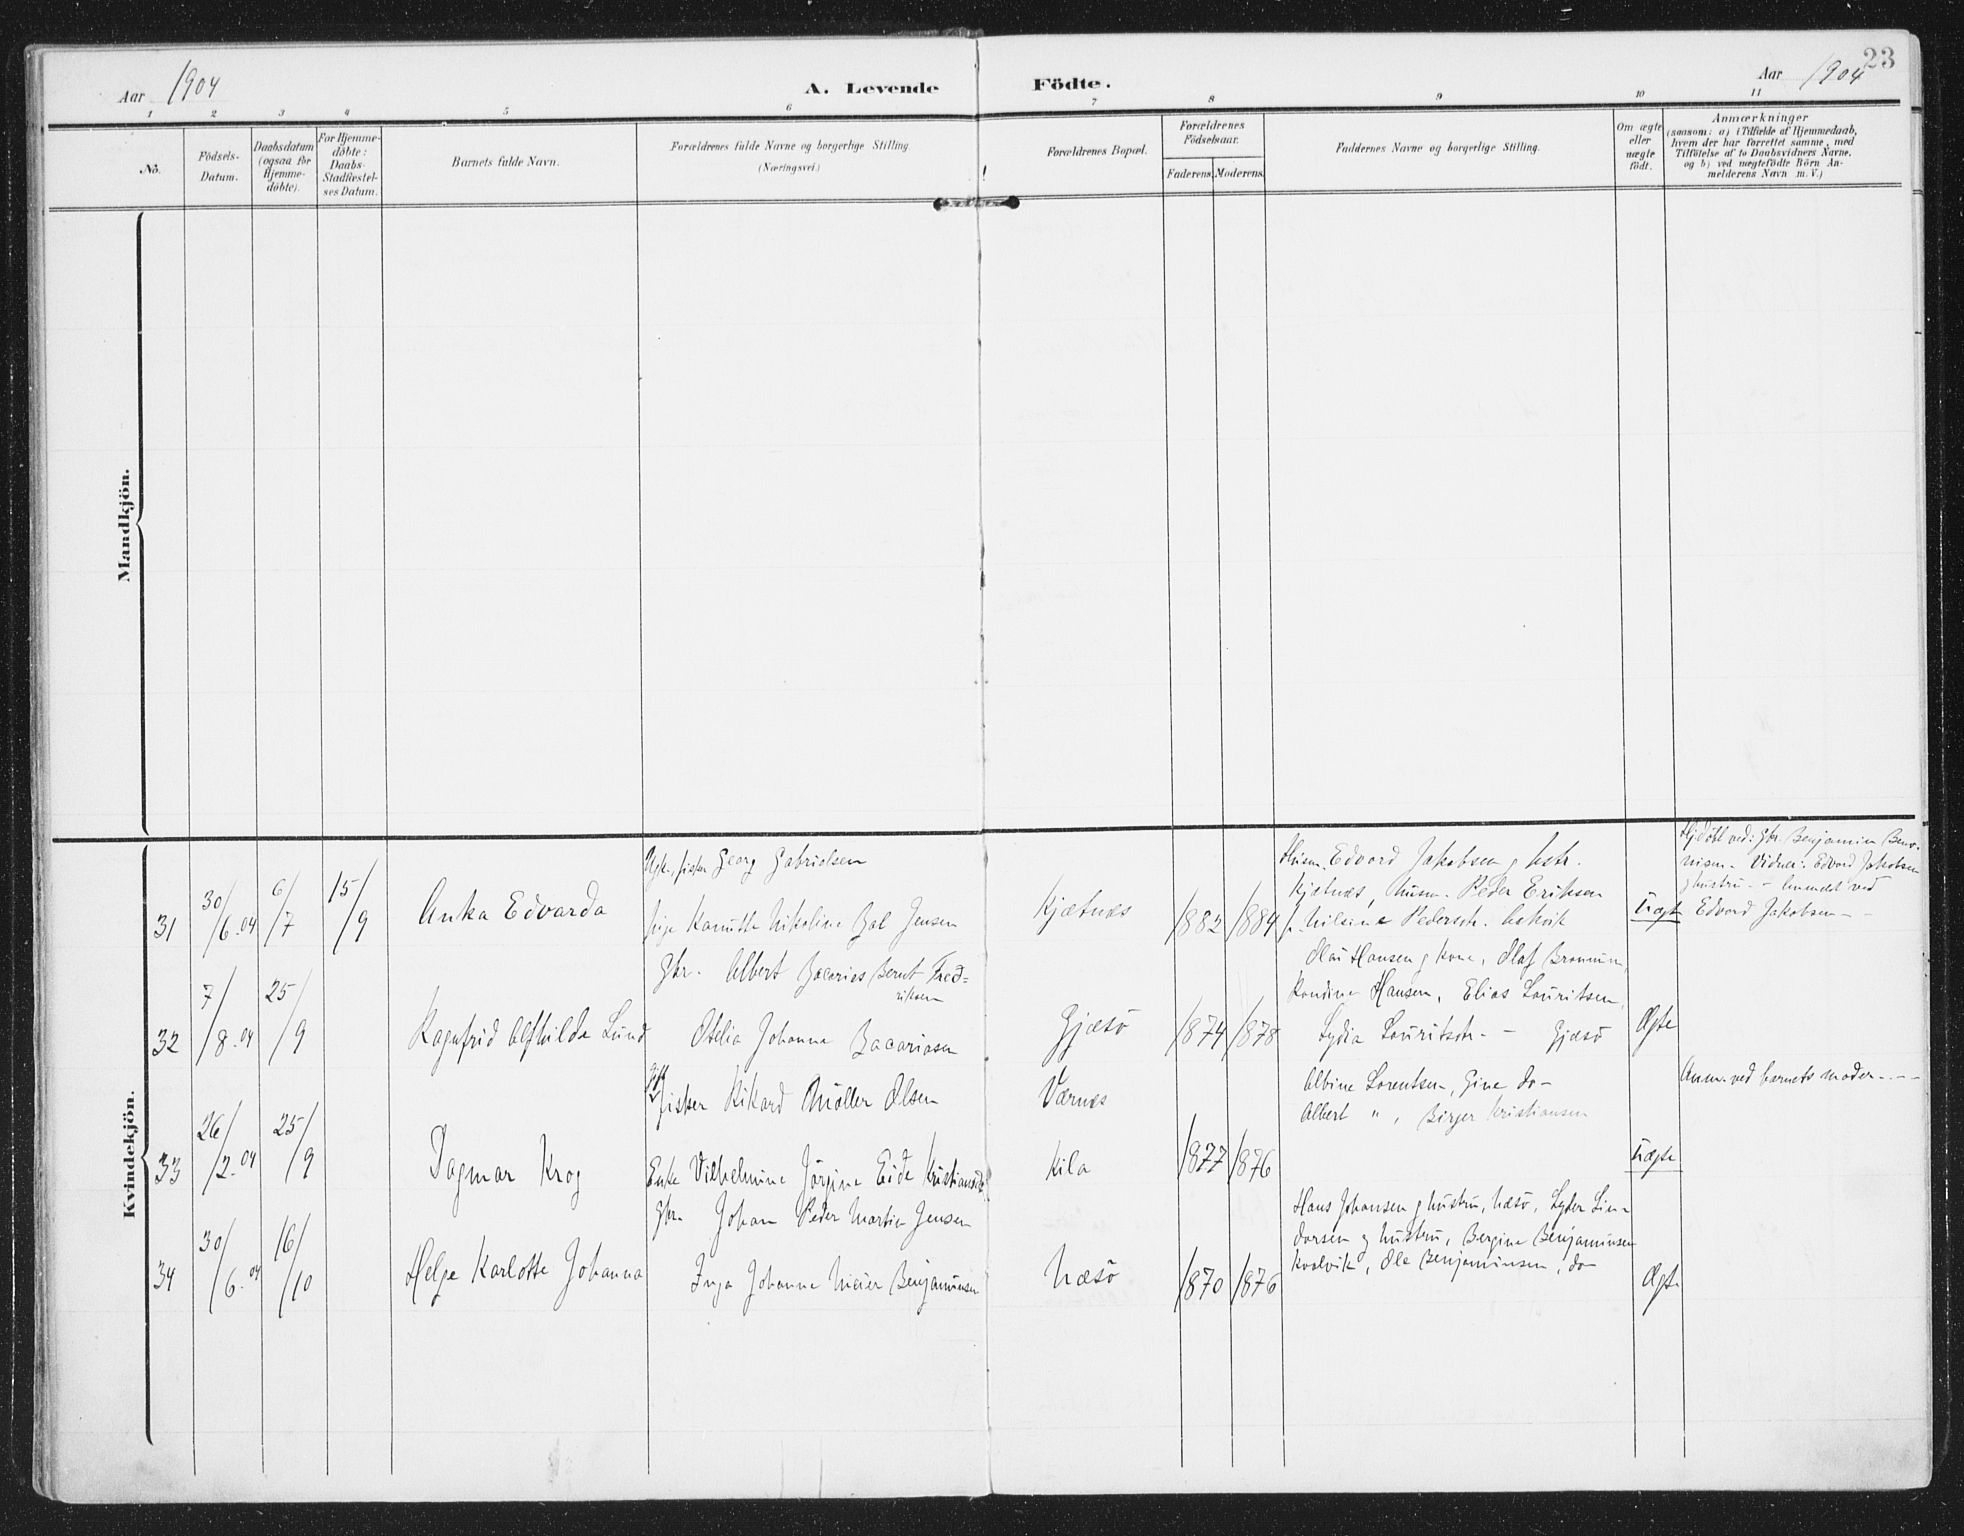 23
Aar 1904
A. Levende Födte.
Aar 1904
1 2 3 4 5 6 7 8 9 10 11
No.
Födsels-
Datum.
Daabsdatum
(ogsaa for
Hjemme-
döbte).
For Hjemme-
döbte:
Daabs-
Stadfæstel-
ses Datum.
Barnets fulde Navn.
Forældrenes fulde Navne og borgerlige Stilling
(Næringsvei.)
Forældrenes Bopæl.
Forældrenes
Födselsaar.
Faderens. Moderens.
Faddernes Navne og borgerlige Stilling.
Om ægte
eller
uægte
født.
Anmærkninger
(saasom: a) i Tilfælde af Hjemmedaab,
hvem der har forrettet samme, med
Tilföielse af to Daabsvidners Navne,
og b) ved uægtefödte Börn An-
melderens Navn m. V.)
Mandkjön.
Kvindekjön.
31
30/6.04
6/7
15/9
Anka Edvarda
Ugk., fisker Georg Gabrielsen
pige Nikoline Jensen
Kjætnæs
1882 1884
Husm. Edvard Jakobsen g hstr.
Kjætnæs, husm. Peder Eriksen
Pedersdtr.
Uægte
Hjdöbt ved: Gbr. Benjamin
Vidner: Edvard Jakobsen
g hustru - Anmeldt ved
Edvard Jakobsen - -
32
7/8.04
25/9
Ragnfrid Alfhilde Lund
Gbr. Albert Zacarias Bernt Fred=
riksen
Otelia Johanna Zacariasen
Gjæsö
1874 1878
Hansen g kone, Olaf
Hansen, Elias Lauritsen,
Lydia Lauritsdtr. - Gjæsö
Ægte
33
26/2.04
25/9
Dagmar Krog
Fisker Rikard Möller Olsen
Enke Vilhelmine Jörgine Eide Kristiansdtr.
Værnes
Kila
1877 1876
Albine Lorentsen, Gine do-
Albert " , Birger Kristiansen
Uægte
Anm. ved barnets moder - - -
34
30/6.04
16/10
Helge Karlotte Johanna
Gbr. Johan Peder Martin Jensen
Inga Johanna Meier Benjaminsen
Næsö
1870 1876
Hans Johansen g hustru, Næsö, Lyder Lin-
dorsen g hustru, Bergine Benjaminsen
Kvalvik, Ole Benjaminsen, do-
Ægte